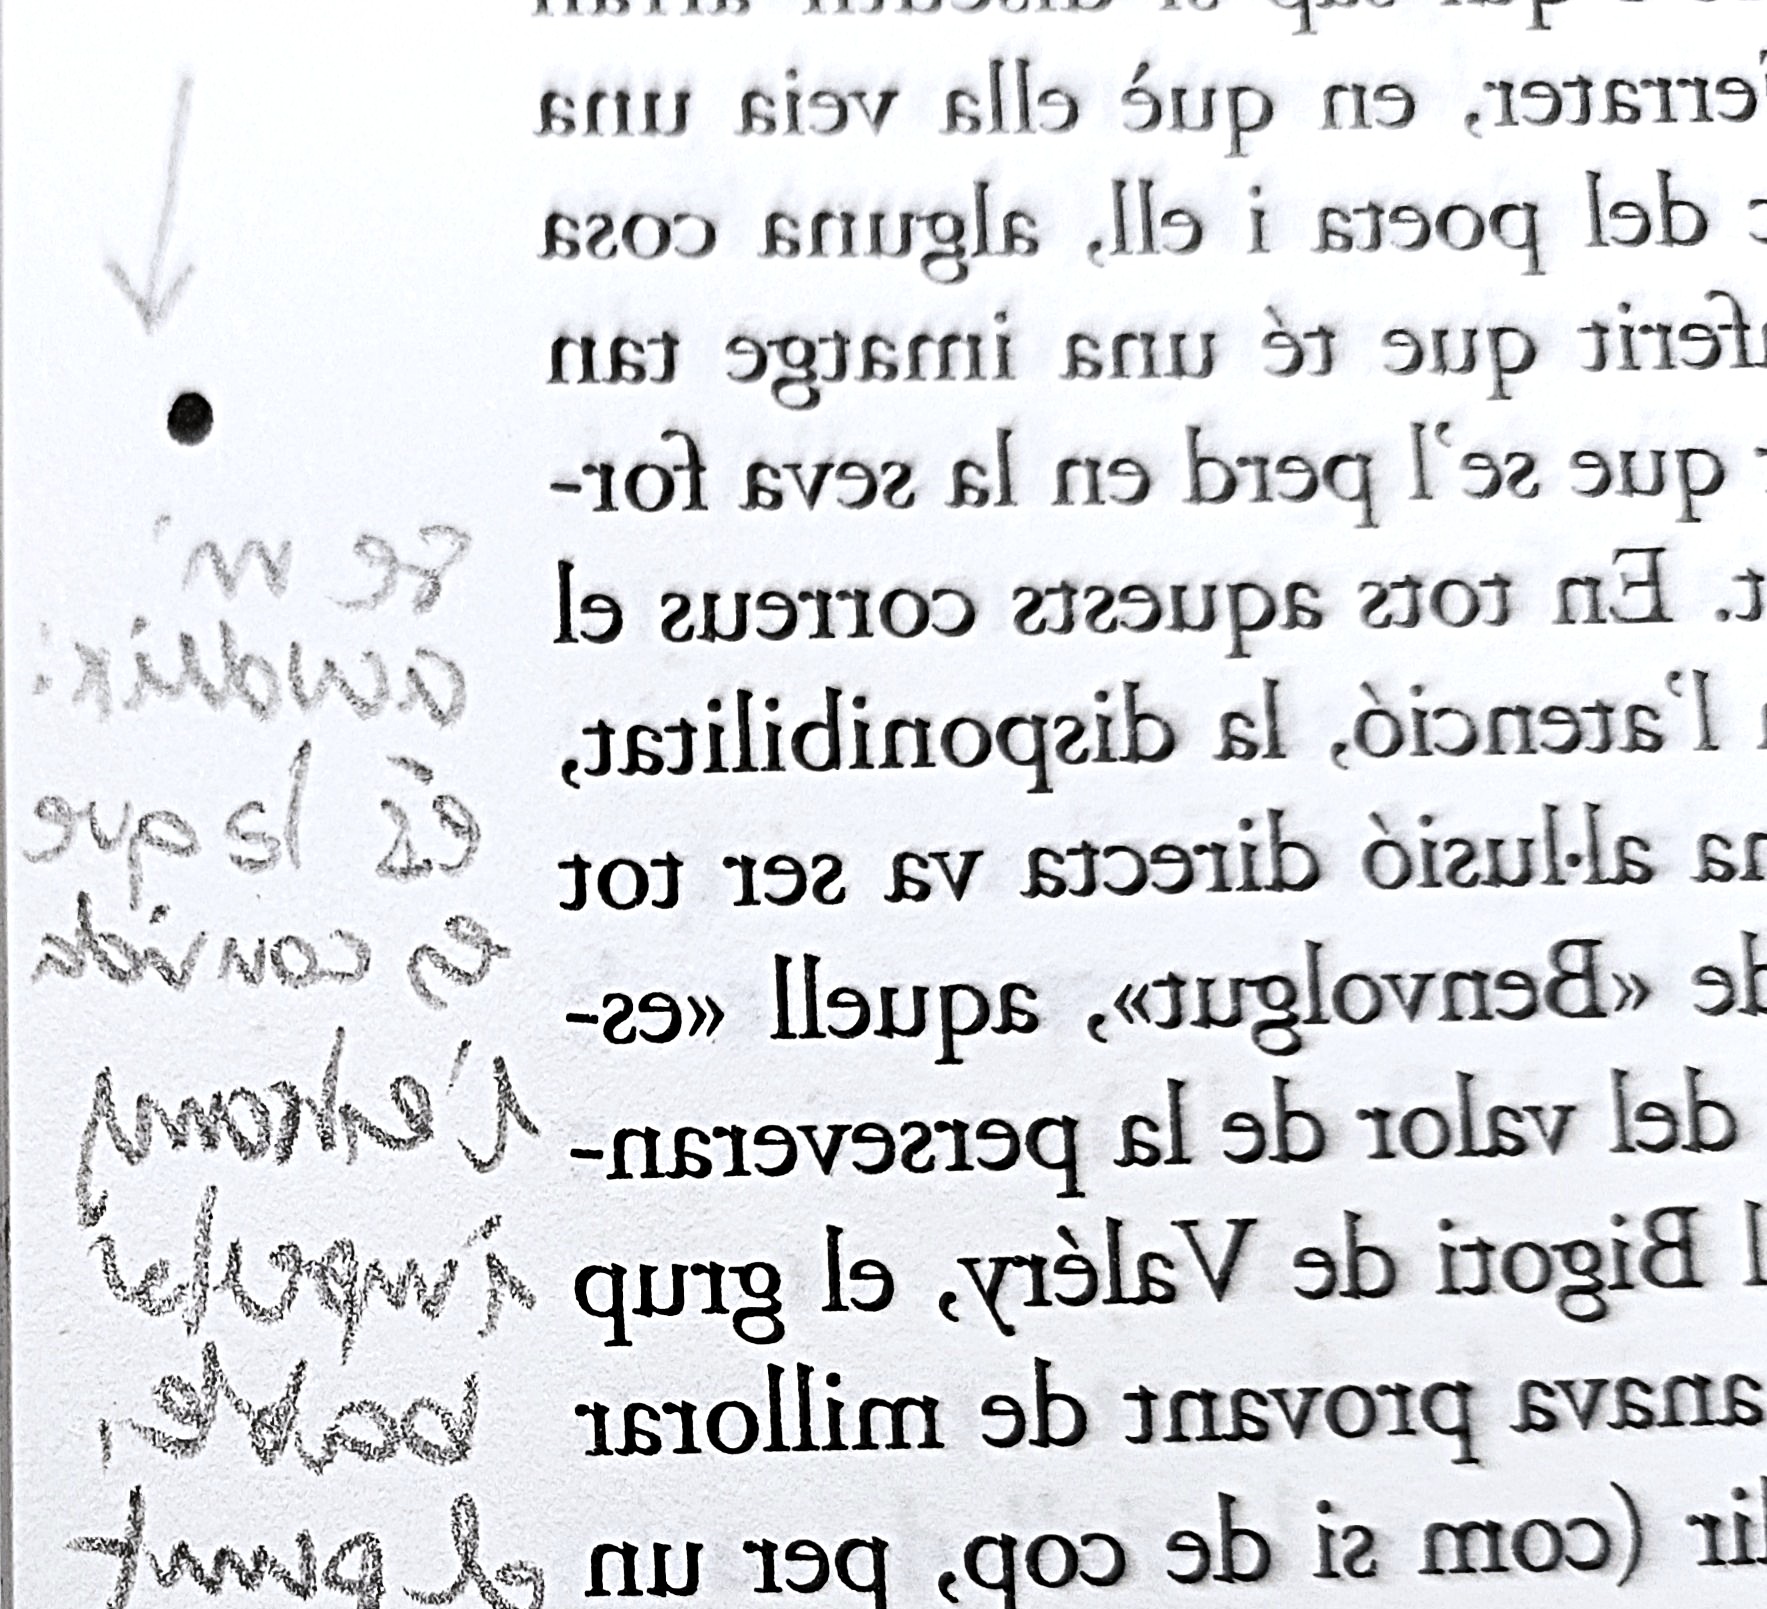 i qui sap si discutir arran
Ferrater, en què ella veia una
del poeta i ell, alguna cosa
aferit que té una imatge tan
que se'l perd en la seva for-
t. En tots aquests correus el
l'atenció, la disponibilitat,
na al·lusió directa va ser tot
de «Benvolgut», aquell «es-
del valor de la perseveran-
l Bigoti de Valéry, el grup
anava provant de millorar
dir (com si de cop, per un
se m'
acudir:
és la que
en convida
l'enteny
i, que la
el punt